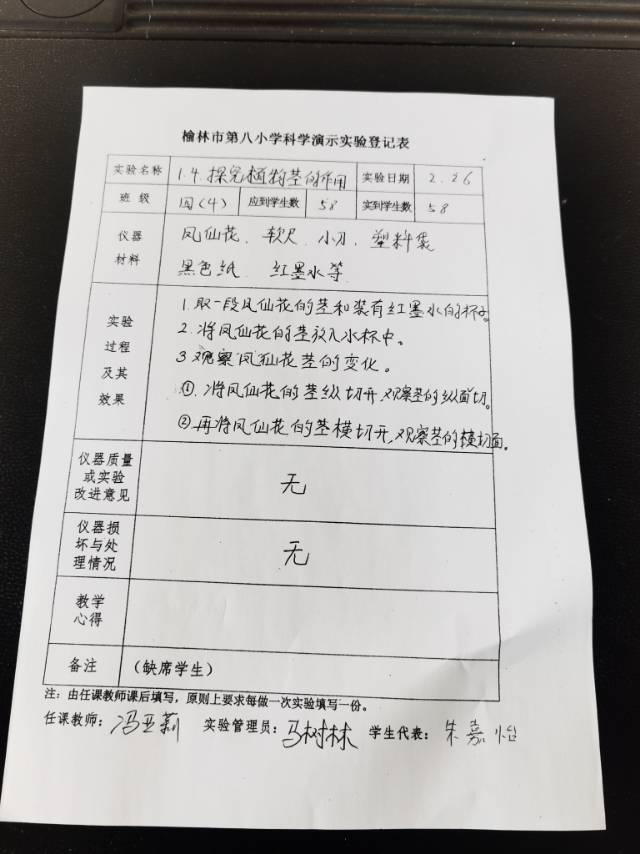 榆林市第八小学科学演示实验登记表
实验名称 1.4.探究植物茎的作用 实验日期 2.26
班级 四(4) 应到学生数 58 实到学生数 58
仪器 凤仙花、软尺、小刀、塑料袋
材料 黑色纸、红墨水等
1.取一段凤仙花的茎和装有红墨水的杯子。
实验 2.将凤仙花的茎放入水杯中。
过程 3.观察凤仙花茎的变化。
及其 ①.将凤仙花的茎纵切开,观察茎的纵面切。
效果 ②再将凤仙花的茎横切开,观察茎的横切面。
仪器质量
或实验 无
改进意见
仪器损
坏与处 无
理情况
教学
心得
备注 (缺席学生)
注：由任课教师课后填写，原则上要求每做一次实验填写一份。
任课教师：冯亚莉 实验管理员：马树林 学生代表：朱嘉怡